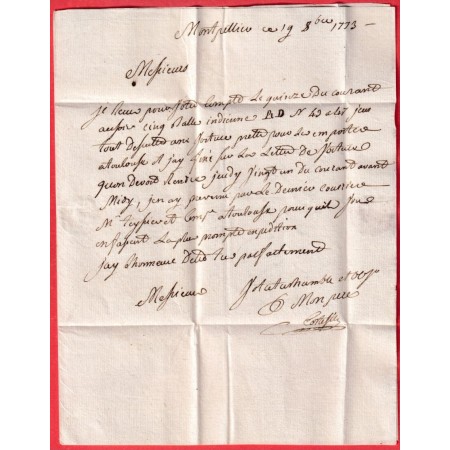 Montpellier ce 19 8bre 1773
Messieurs
Je pour Votre Compte Le quinze Du courant
cinq Balle indienne AD N 43 a 47 jeus
tout De suitte une Voiture prette pour Les emporter
a toulouse et jay fixé sur La Lettre de Voiture
quon Devoit Rendre jeudy Vingt un du courant avant
Midy, jen ay prevenu par Le Dernier courrier
Mr et comp a toulouse pour quil Vous
en fassent La plus prompte expedition
Jay Lhonneur Detre tres parfaittement
Messieurs Votre tres humble et
Mon pere